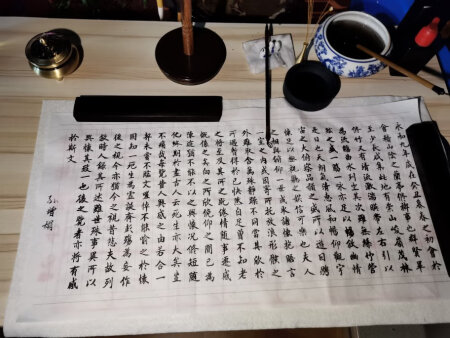 永和九年歲在癸丑暮春之初會於
會稽山陰之蘭亭脩禊事也群賢畢
至少長咸集此地有崇山峻嶺茂林
脩竹又有清流激湍暎帶左右引以
為流觴曲水列坐其次雖無絲竹管
弦之盛一觴一詠亦足以暢敘幽情
是日也天朗氣清惠風和暢仰觀宇
宙之大俯察品類之盛所以遊目騁
懷足以極視聽之娛信可樂也夫人
之相與俯仰一世或取諸懷抱悟言
一室之內或因寄所託放浪形骸之
外雖取舍萬殊靜躁不同當其欣於
所遇暫得於己快然自足不知老
之將至及其所之既倦情隨事遷感
慨係之矣向之所欣俛仰之間已為
陳迹猶不能不以之興懷況脩短隨
化終期於盡古人云死生亦大矣豈
不痛哉每覽昔人興感之由若合一
契未嘗不臨文嗟悼不能喻之於懷
固知一死生為虛誕齊彭殤為妄作
後之視今亦猶今之視昔悲夫故列
敘時人錄其所述雖世殊事異所以
興懷其致一也後之覽者亦將有感
於斯文